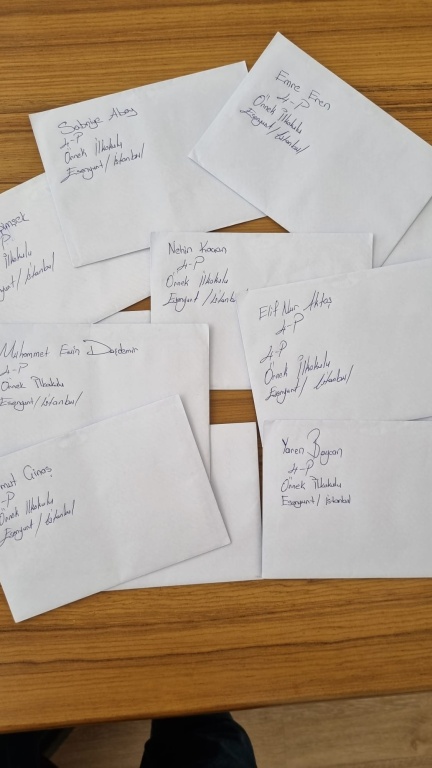 Emre Eren
4-P
Örnek İlkokulu
Esenyurt/İstanbul
Sabriye Abay
4-P
Örnek İlkokulu
Esenyurt/İstanbul
P.
İlkokulu
İstanbul
Nehin Kaaan
4-P
Örnek İlkokulu
Esenyurt/İstanbu
Elif Nur Aktaş
4-P
4-P
Örnek İlkokulu
Esenyurt/İstanbul
Muhammet Emin Dardemir
4-P
Örnek İlkokulu
Esenyurt/İstanbul
Yaren Baycan
4-P
Örnek İlkokulu
Esenyurt/İstanbul
-P
Örnek İlkokulu
Esenyurt/İstanbul